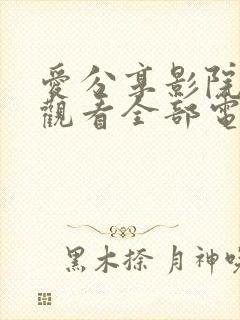 愛分享影院
觀看全部電
黑木捺 月神